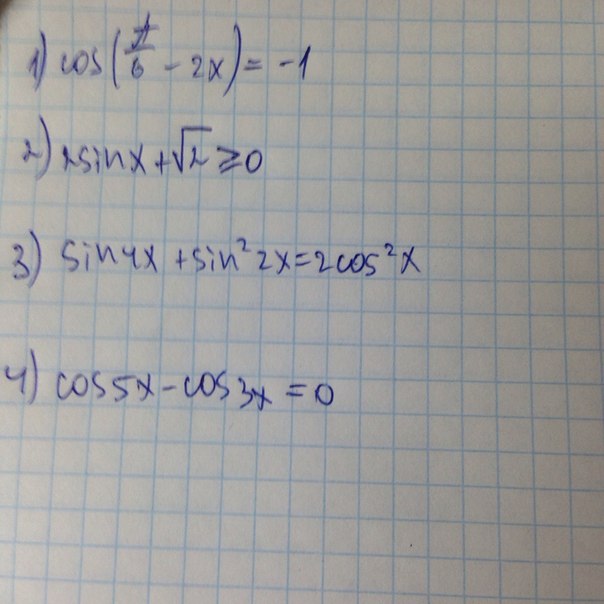 1) cos(π/6 - 2x) = -1
2) 2sinx + √2 ≥ 0
3) sin4x + sin²2x = 2cos²x
4) cos5x - cos3x = 0